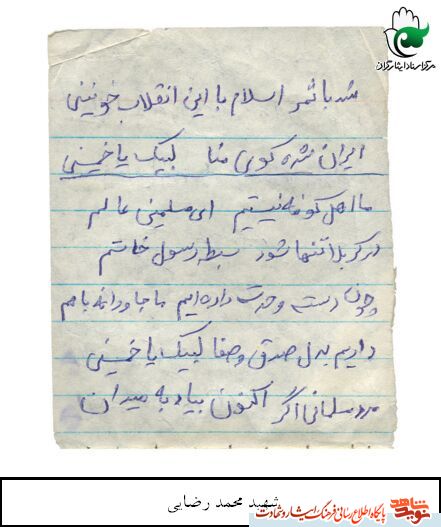 مرکز اسناد ایثارگران
شد با ثمر اسلام با این انقلاب خونینی
ایران شده کوی منا لبیک یا خمینی
ما اهل کوفه نیستیم ای مسلمین عالم
در کربلا تنها شود سبط رسول خاتم
چون دست وحدت داده‌ایم ما جاودانه با هم
داریم بدل صدق و صفا لبیک یا خمینی
مرد مسلمانی اگر اکنون بیا به میدان
شهید محمد رضایی
نوید شاهد
پایگاه اطلاع رسانی فرهنگ ایثار و شهادت